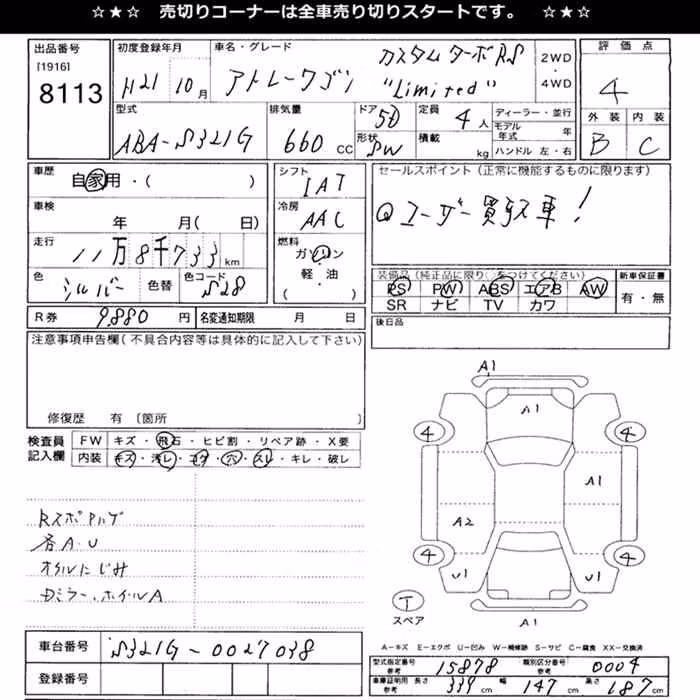 ☆★☆ 売切りコーナーは全車売り切りスタートです。 ☆★☆
出品番号 初度登録年月 車名・グレード カスタムターボRS 2WD ・ 4WD 評価点
[1916]
8113 H21年10月 アトレーワゴン "Limited" 4
型式 排気量 ドア 5D 定員 4人 ディーラー・並行 外装 内装
ABA-S321G 660CC 形状 SW 積載 kg モデル年式 年 B C
ハンドル 左・右
車歴 自家用・( ) シフト IAT セールスポイント(正常に機能するものに限ります)
車検 年 月( 日) 冷房 AAC ユーザー買取車!
走行 11万8千733km 燃料 ガソリン・軽油 ( )
色 シルバー 色替 色コード S28
装備品(純正品に限り○をつけてください) 新車保証書
PS PW ABS エアB AW 有・無
SR ナビ TV カワ
R券 9,880円 名変通知期限 月 日 後日品
注意事項申告欄(不具合内容等は具体的に記入して下さい)
修復歴 有 〔箇所
検査員記入欄 FW キズ・飛石・ヒビ割・リペア跡・X要
内装 キズ・汚レ・コゲ・穴・スレ・キレ・破レ
Rスポアハゲ
各A・U
オイルにじみ
Dミラー、ホイルA
A1
A1
4 4
A1
A2
4 4
U1 U1
T
スペア A1
車台番号 S321G-0027038
登録番号
A-キズ E-エクボ U-凹み W-補修跡 S-サビ C-腐食 XX-交換済
型式指定番号 参考 15878 類別区分番号 参考 0004
車庫証明用 参考 長さ 339cm 幅 147cm 高さ 187cm